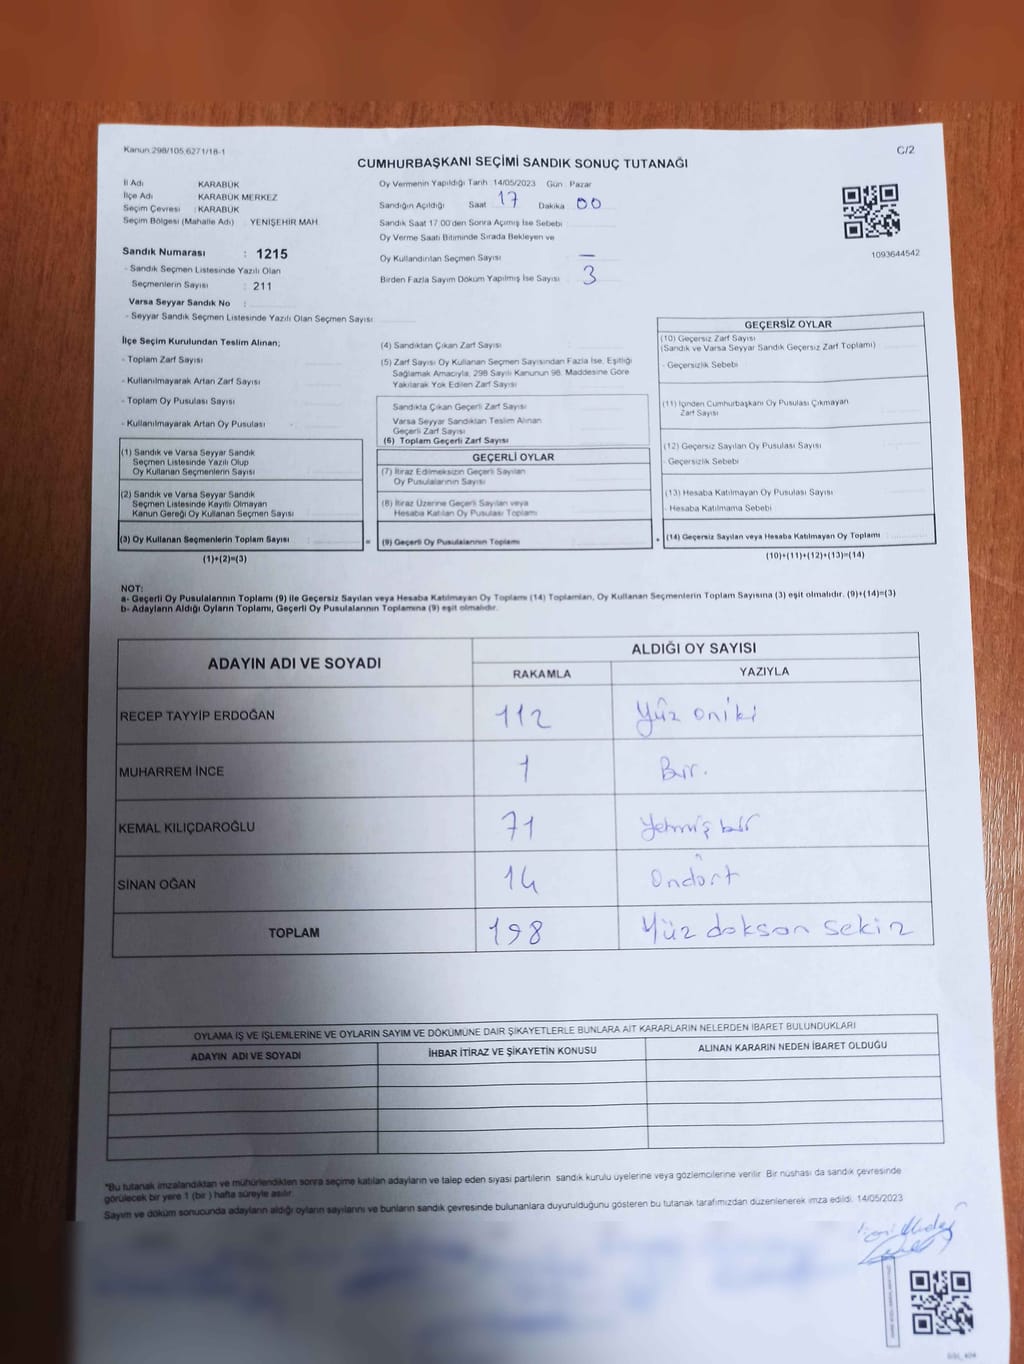 Kanun:298/105,6271/18-1
C/2
CUMHURBAŞKANI SEÇİMİ SANDIK SONUÇ TUTANAĞI
İl Adı KARABÜK
İlçe Adı : KARABÜK MERKEZ
Seçim Çevresi : KARABÜK
Seçim Bölgesi (Mahalle Adı) : YENİŞEHİR MAH.
Oy Vermenin Yapıldığı Tarih 14/05/2023 Gün Pazar
Sandığın Açıldığı Saat 17 Dakika 00
Sandık Saat 17.00'den Sonra Açılmış İse Sebebi
Oy Verme Saati Bitiminde Sırada Bekleyen ve
Oy Kullandırılan Seçmen Sayısı —
Birden Fazla Sayım Döküm Yapılmış İse Sayısı 3
1093644542
Sandık Numarası : 1215
- Sandık Seçmen Listesinde Yazılı Olan
Seçmenlerin Sayısı : 211
Varsa Seyyar Sandık No :
- Seyyar Sandık Seçmen Listesinde Yazılı Olan Seçmen Sayısı:
İlçe Seçim Kurulundan Teslim Alınan;
- Toplam Zarf Sayısı
- Kullanılmayarak Artan Zarf Sayısı
- Toplam Oy Pusulası Sayısı
- Kullanılmayarak Artan Oy Pusulası
(1) Sandık ve Varsa Seyyar Sandık
Seçmen Listesinde Yazılı Olup
Oy Kullanan Seçmenlerin Sayısı
(2) Sandık ve Varsa Seyyar Sandık
Seçmen Listesinde Kayıtlı Olmayan
Kanun Gereği Oy Kullanan Seçmen Sayısı
(3) Oy Kullanan Seçmenlerin Toplam Sayısı
(1)+(2)=(3)
(4) Sandıktan Çıkan Zarf Sayısı
(5) Zarf Sayısı Oy Kullanan Seçmen Sayısından Fazla İse, Eşitliği
Sağlamak Amacıyla, 298 Sayılı Kanunun 98. Maddesine Göre
Yakılarak Yok Edilen Zarf Sayısı
Sandıkta Çıkan Geçerli Zarf Sayısı
Varsa Seyyar Sandıktan Teslim Alınan
Geçerli Zarf Sayısı
(6) Toplam Geçerli Zarf Sayısı
GEÇERLİ OYLAR
(7) İtiraz Edilmeksizin Geçerli Sayılan
Oy Pusulalarının Sayısı
(8) İtiraz Üzerine Geçerli Sayılan veya
Hesaba Katılan Oy Pusulası Toplamı
= (9) Geçerli Oy Pusulalarının Toplamı
GEÇERSİZ OYLAR
(10) Geçersiz Zarf Sayısı
(Sandık ve Varsa Seyyar Sandık Geçersiz Zarf Toplamı)
- Geçersizlik Sebebi
(11) İçinden Cumhurbaşkanı Oy Pusulası Çıkmayan
Zarf Sayısı
(12) Geçersiz Sayılan Oy Pusulası Sayısı
- Geçersizlik Sebebi
(13) Hesaba Katılmayan Oy Pusulası Sayısı
- Hesaba Katılmama Sebebi
+ (14) Geçersiz Sayılan veya Hesaba Katılmayan Oy Toplamı
(10)+(11)+(12)+(13)=(14)
NOT:
a- Geçerli Oy Pusulalarının Toplamı (9) ile Geçersiz Sayılan veya Hesaba Katılmayan Oy Toplamı (14) Toplamları, Oy Kullanan Seçmenlerin Toplam Sayısına (3) eşit olmalıdır. (9)+(14)=(3)
b- Adayların Aldığı Oyların Toplamı, Geçerli Oy Pusulalarının Toplamına (9) eşit olmalıdır.
ADAYIN ADI VE SOYADI ALDIĞI OY SAYISI
RAKAMLA YAZIYLA
RECEP TAYYİP ERDOĞAN 112 Yüz oniki
MUHARREM İNCE 1 Bir.
KEMAL KILIÇDAROĞLU 71 Yetmiş bir
SİNAN OĞAN 14 Ondört
TOPLAM 198 Yüz doksan sekiz
OYLAMA İŞ VE İŞLEMLERİNE VE OYLARIN SAYIM VE DÖKÜMÜNE DAİR ŞİKAYETLERLE BUNLARA AİT KARARLARIN NELERDEN İBARET BULUNDUKLARI
ADAYIN ADI VE SOYADI İHBAR İTİRAZ VE ŞİKAYETİN KONUSU ALINAN KARARIN NEDEN İBARET OLDUĞU
*Bu tutanak imzalandıktan ve mühürlendikten sonra seçime katılan adayların ve talep eden siyasi partilerin sandık kurulu üyelerine veya gözlemcilerine verilir. Bir nüshası da sandık çevresinde
görülecek bir yere 1 (bir ) hafta süreyle asılır.
Sayım ve döküm sonucunda adayların aldığı oyların sayılarını ve bunların sandık çevresinde bulunanlara duyurulduğunu gösteren bu tutanak tarafımızdan düzenlenerek imza edildi. 14/05/2023